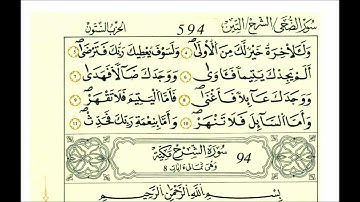 سورة الضحى الشرح التين 594 الحزب الستون
وَلَلْآخِرَةُ خَيْرٌ لَّكَ مِنَ الْأُولَىٰ ٤ وَلَسَوْفَ يُعْطِيكَ رَبُّكَ فَتَرْضَىٰ ٥
أَلَمْ يَجِدْكَ يَتِيمًا فَآوَىٰ ٦ وَوَجَدَكَ ضَالًّا فَهَدَىٰ ٧
وَوَجَدَكَ عَائِلًا فَأَغْنَىٰ ٨ فَأَمَّا الْيَتِيمَ فَلَا تَقْهَرْ ٩
وَأَمَّا السَّائِلَ فَلَا تَنْهَرْ ١٠ وَأَمَّا بِنِعْمَةِ رَبِّكَ فَحَدِّثْ ١١
سُورَةُ الشَّرْحِ مَكِّيَّة 94
وَهِيَ ثَمَانِي آيَات 8
بِسْمِ اللَّهِ الرَّحْمَٰنِ الرَّحِيمِ